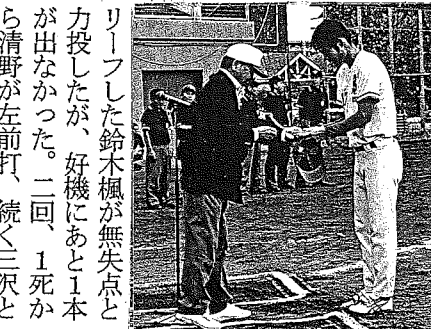 リーフした鈴木楓が無失点と
力投したが、好機にあと1本
が出なかった。二回、1死か
ら清野が左前打、続く三沢と